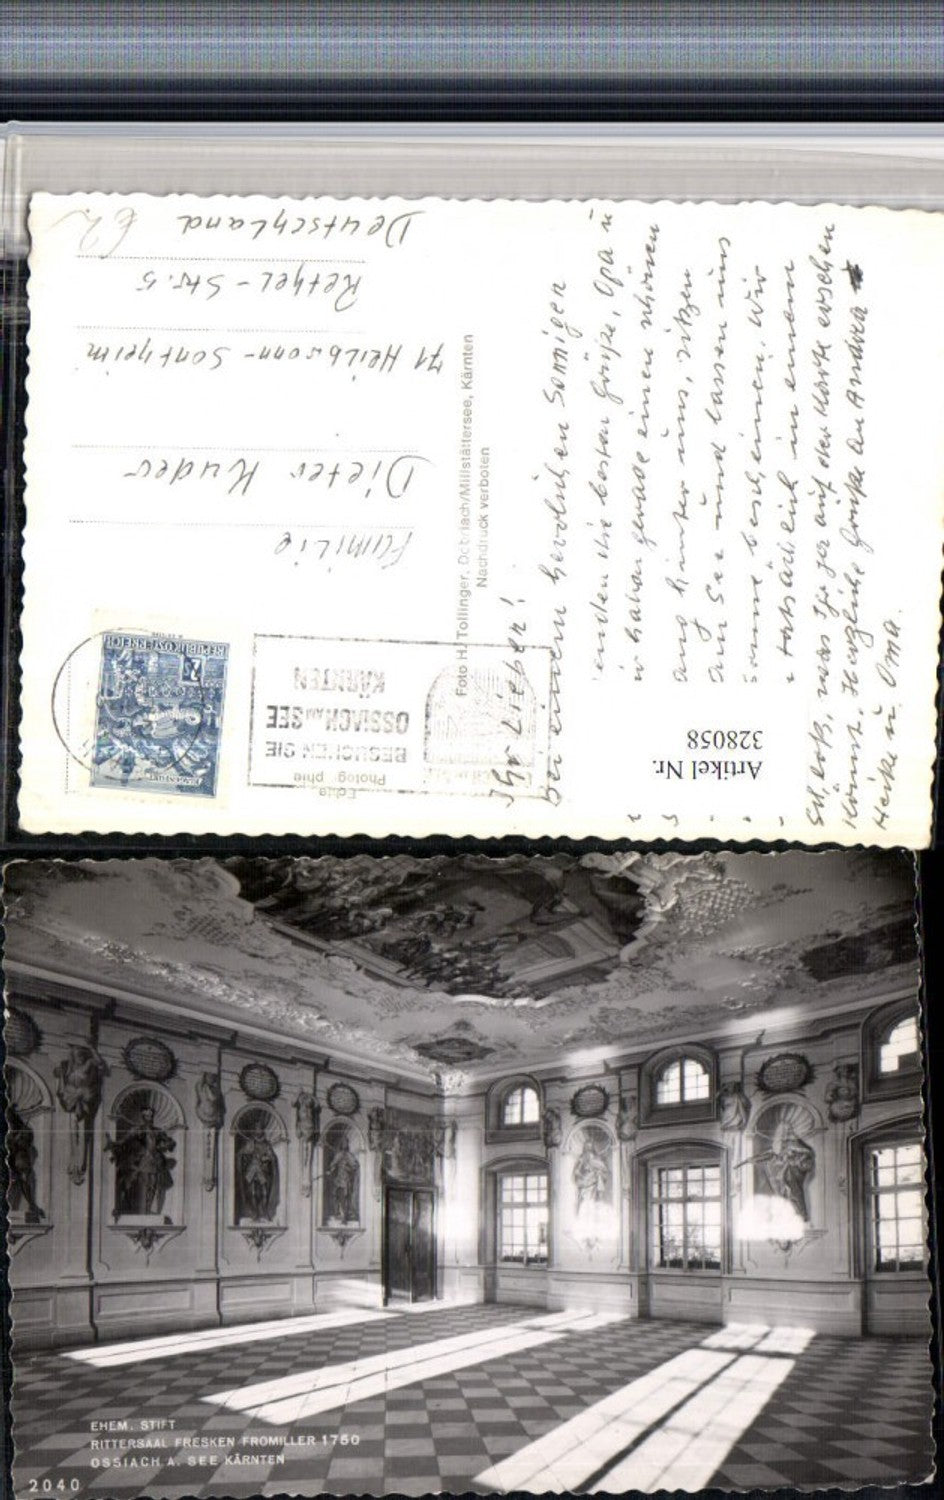 Familie
Dieter Kuder
71 Heilbronn-Sontheim
Rethel-Str. 5
Deutschland
REPUBLIK ÖSTERREICH
Echte
Photographie
BESUCHEN SIE
OSSIACH AM SEE
KÄRNTEN
Foto H. Tollinger, Döbriach/Millstättersee, Kärnten
Nachdruck verboten
Ihr Lieben!
Bei einem herrlichen sonnigen
die besten Grüße, Opa u
haben gerade einen schönen
hinter uns, sitzen
am See und lassen uns
bescheinen. Wir
tatsächlich in einem
Schloß, was Ihr auf der Karte ersehen
könnt. Herzliche Grüße an Andrea
Heike u. Oma.
Artikel Nr.
328058
EHEM. STIFT
RITTERSAAL FRESKEN FROMILLER 1750
OSSIACH A. SEE KÄRNTEN
2040